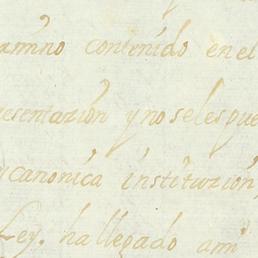 camino contenido en el
esentazion y no seles pue
y canonica instituzion
Ley. ha llegado ami